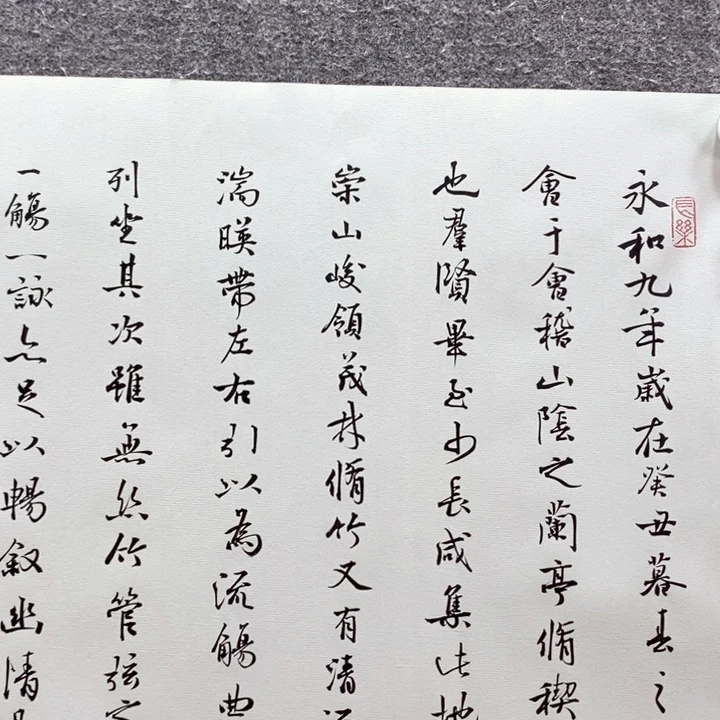 永和九年歲在癸丑暮春之
會于會稽山陰之蘭亭脩稧
也羣賢畢至少長咸集此地
崇山峻領茂林脩竹又有清
湍暎帶左右引以為流觴曲
列坐其次雖無絲竹管弦之
一觴一詠亦足以暢叙幽情
長樂